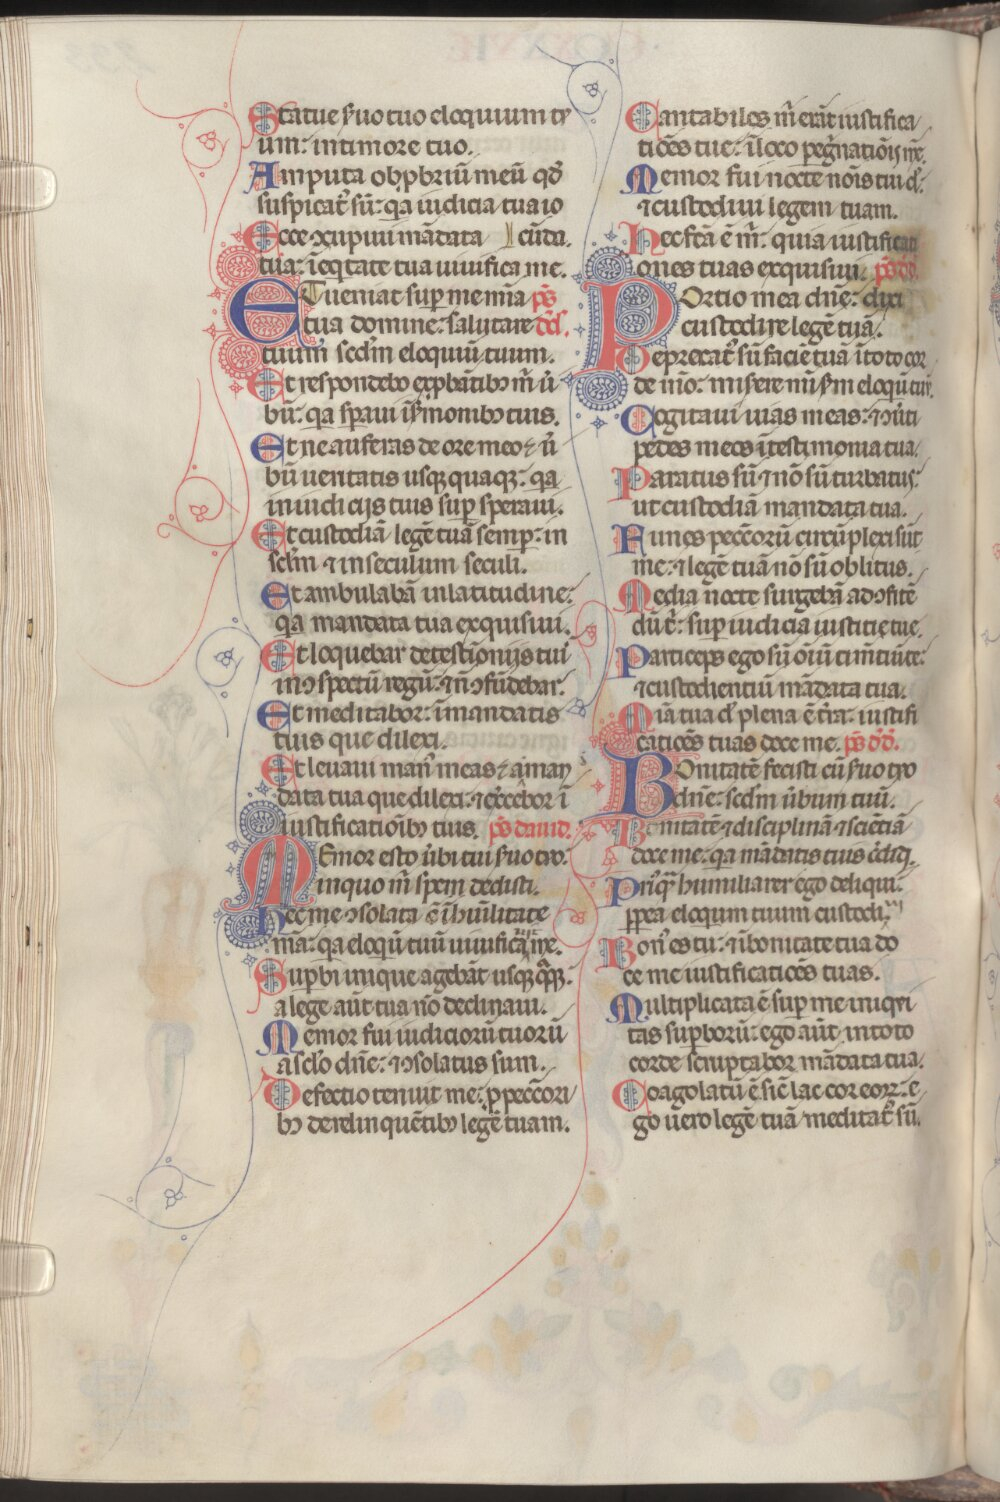 Statue s̃uo tuo eloquium tu
um: in timore tuo.
Amputa obp̱briũ meũ qd̃
suspicat᷒ sũ: q̃a iudicia tua io
Ecce ↄcupiui mãdata cũda.
tua: ĩ eq̃tate tua uiuifica me.
ET ueniat sup̱ me mĩa p̃s
tua domine: salutare dd̃s.
tuum scd̃m eloquiũ tuum.
Et respondebo exp̱bãtibꝫ m̃ ũ
bũ: q̃a sp̱aui ĩ s̃monibꝫ tuis.
Et ne auferas de ore meo ⁊ ũ
bũ ueritatis usqꝫ quaqꝫ: q̃a
in iudicijs tuis sup̱ speraui.
Et custodiã legẽ tuã semp̱: in
sclm̃ ⁊ in seculum seculi.
Et ambulabã in latitudine:
q̃a mandata tua exquisiui.
Et loquebar de testĩonijs tuis
in ↄspectũ regũ: ⁊ ñ ↄfũdebar.
Et meditabor: ĩ mandatis
tuis que dilexi.
Et leuaui man᷒ meas ⁊ a man
data tua que dilexi: ⁊ ex̃cebor ĩ
iustificatiõibꝫ tuis. p̃s dauid.
MEmor esto ũbi tui s̃uo tuo.
in quo m̃ spem dedisti.
Hec me ↄsolata ẽ ĩ hũilitate
mẽa: q̃a eloqũ tuũ uiuificauit me.
Sup̱bi inique agebãt usqꝫ q̃qꝫ:
a lege aũt tua nõ declinaui.
Memor fui iudiciorũ tuorũ
a sclo dñe: ⁊ ↄsolatus sum.
Defectio tenuit me: p̱ peccõri
bꝫ derelinquẽtibꝫ legẽ tuam.
Cantabiles m̃ erãt iustifica
tiões tue: ĩ loco peg̃natiõis mẽ.
Memor fui nocte nõis tui d̃:
⁊ custodiui legem tuam.
Hec fc̃a ẽ m̃: quia iustificati
ones tuas exquisiui. p̃s dd̃
POrtio mea dñe: dixi
custodire legẽ tuã.
Deprecat᷒ sũ faciẽ tuã ĩ toto cor
de meo: miserere mei s̃m eloqũ tuũ.
Cogitaui uias meas: ⁊ ↄũti
pedes meos ĩ testimonia tua.
Paratus sũ ⁊ nõ sũ turbatus:
ut custodiã mandata tua.
Funes peccõrũ circũplexi sũt
me: ⁊ legẽ tuã nõ sũ oblitus.
Media nocte surgebã ad ↄfitẽ
dũ t̃: sup̱ iudicia iustitie tue.
Particeps ego sũ oĩũ timẽtiũ te:
⁊ custodientiũ mãdata tua.
Mĩa tua d̃ plena ẽ tr̃a: iustifi
catiões tuas doce me. p̃s dd̃.
BOnitatẽ fecisti cũ s̃uo tuo
dñe: scd̃m ũbum tuũ.
Bonitatẽ ⁊ disciplinã ⁊ sciẽtiã
doce me: q̃a mãdatis tuis cr̃didi.
Pri᷒q̃ humiliarer ego deliqui:
p̱p̱ea eloqium tuum custodiui.
Bon᷒ es tu: ⁊ ĩ bonitate tua do
ce me iustificatiões tuas.
Multiplicata ẽ sup̱ me iniqui
tas sup̱borũ: ego aũt in toto
corde scruptabor mãdata tua.
Coagolatũ ẽ sic̃ lac cor eorꝝ: e
go uero legẽ tuã meditat᷒ sũ.